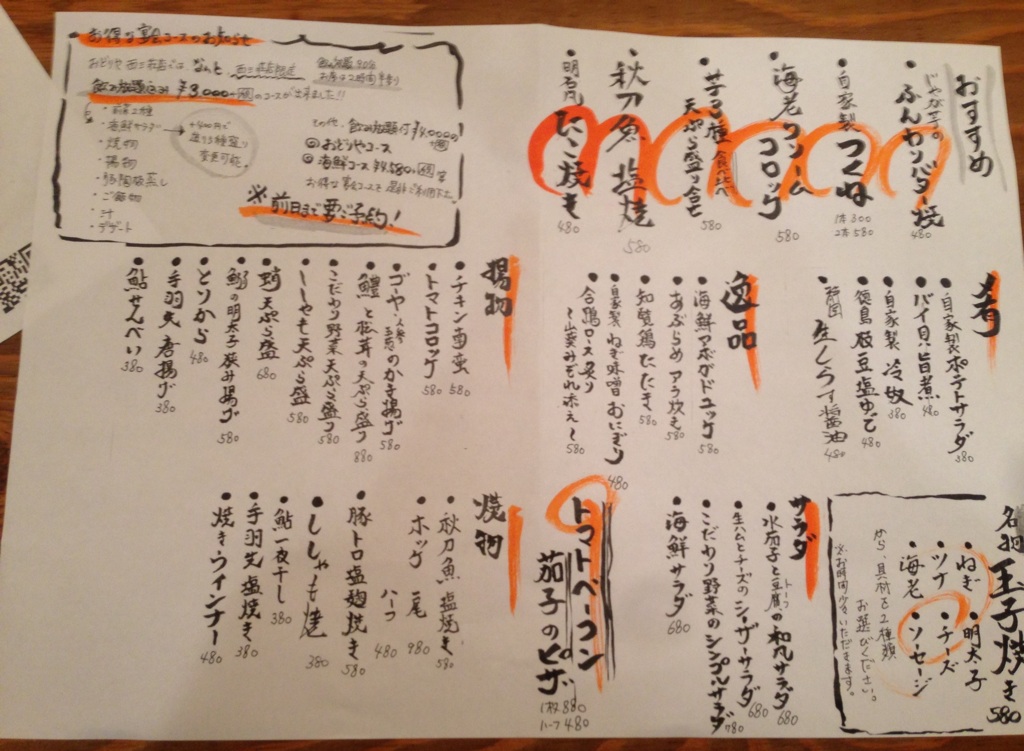 おすすめ
じゃが芋の
ふんわりバター焼
480
自家製 つくね
1本 300
2本 580
海老クリームコロッケ
580
芋3種 食べ比べ
天ぷら盛り合せ
580
秋刀魚 塩焼
580
明石 たこ焼き
480
肴
自家製ポテトサラダ
380
バイ貝旨煮
480
自家製 冷奴
380
徳島 枝豆塩ゆで
480
静岡 生しらす醤油
480
逸品
海鮮アボガドユッケ
580
あぶらめ アラ炊き
580
知覧鶏たたき
580
自家製 ねぎ味噌おにぎり
480
合鴨ロース炙り
580
揚物
チキン南蛮
580
トマトコロッケ
580
ゴーヤ・人参・玉葱のかき揚げ
580
鱧と松茸の天ぷら盛り
880
こだわり野菜天ぷら盛り
580
ししゃも天ぷら盛
580
蛸天ぷら盛
680
鰯の明太子挟み揚げ
580
とりから
480
手羽先唐揚げ
380
鮎せんべい
380
名物 玉子焼き
580
ねぎ ・明太子
ツナ ・チーズ
海老 ・ソーセージ
から、具材を2種類
お選びください。
※お時間少々いただきます。
サラダ
水茄子と豆腐の和風サラダ
680
生ハムとチーズのシーザーサラダ
680
こだわり野菜のシンプルサラダ
780
海鮮サラダ
680
トマトベーコン
茄子のピザ
1枚 880
ハーフ 480
焼物
秋刀魚塩焼き
580
ホッケ 一尾
980
ハーフ
480
豚トロ塩麹焼き
580
ししゃも焼
380
鮎一夜干し
380
手羽先塩焼き
380
焼きウインナー
480
お得な宴会コースのお知らせ
飲み放題込み ¥3,000+税のコースが出来ました!!
・前菜2種
・海鮮サラダ
+400円で
造り3種盛り
変更可能。
・焼物
・揚物
・ご飯物
・汁
・デザート
その他、飲み放題付 ¥4,000+税の
おどりやコース
海鮮コース ¥4,580+税 等
※前日まで要ご予約!